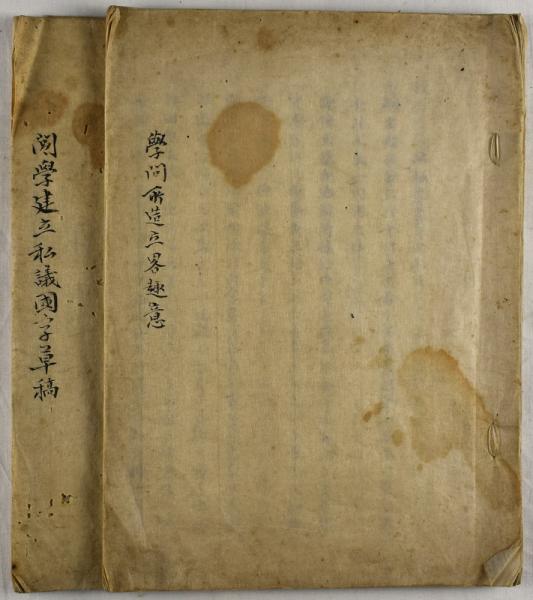 學問所造立畧趣意
學建立私議國字草稿